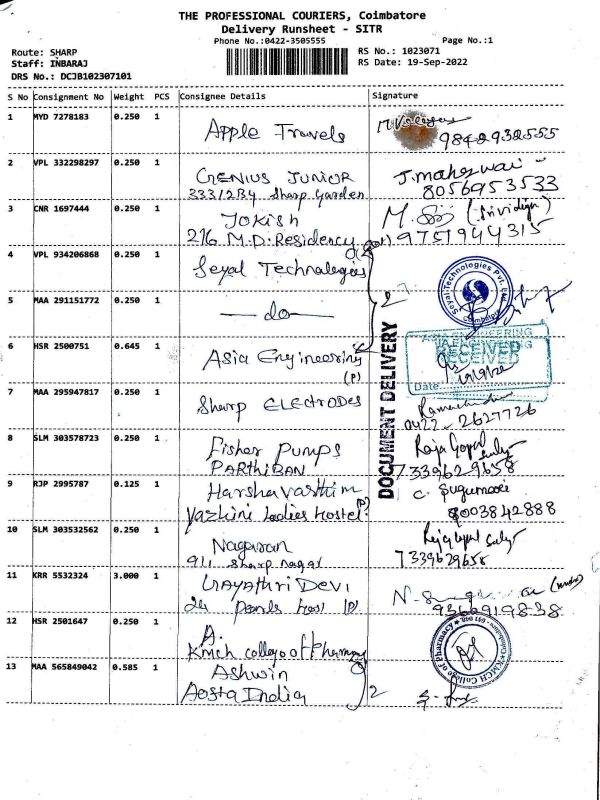 THE PROFESSIONAL COURIERS, Coimbatore
Delivery Runsheet - SITR
Phone No.:0422-3505555
Page No.:1
Route: SHARP
RS No.: 1023071
Staff: INBARAJ
RS Date: 19-Sep-2022
DRS No.: DCJB102307101
S No Consignment No Weight PCS Consignee Details Signature
1 MYD 7278183 0.250 1 Apple Travels
9842932555
2 VPL 332298297 0.250 1 GENIUS JUNIOR J.maheswari
333/2B4 Sharp Garden 8056953533
3 CNR 1697444 0.250 1 JOKISH M.
216 M.D. Residency 9751944315
4 VPL 934206868 0.250 1 Seyal Technologies
Seyal Technologies Pvt. Ltd. Coimbatore
5 MAA 291151772 0.250 1 -do-
6 HSR 2500751 0.645 1 Asia Engineering (P)
ASIA ENGINEERING
RECEIVED
Date 19/9/22
DOCUMENT DELIVERY
7 MAA 295947817 0.250 1 Sharp ELECTRODES
0422-2627726
8 SLM 303578723 0.250 1 Fisher Pumps Raja Gopal
PARTHIBAN 7339629658
9 RJP 2995787 0.125 1 Harshavarthini C.
Yazhini Ladies Hostel 8003842888
10 SLM 303532562 0.250 1 Nagaran
911, Sharp nagar 7339629658
11 KRR 5532324 3.000 1 Gayathri Devi
9366919838
12 HSR 2501647 0.250 1 A.
Kmch college of Pharmacy
KMCH College of Pharmacy
13 MAA 565849042 0.585 1 Ashwin
Aosta India 2